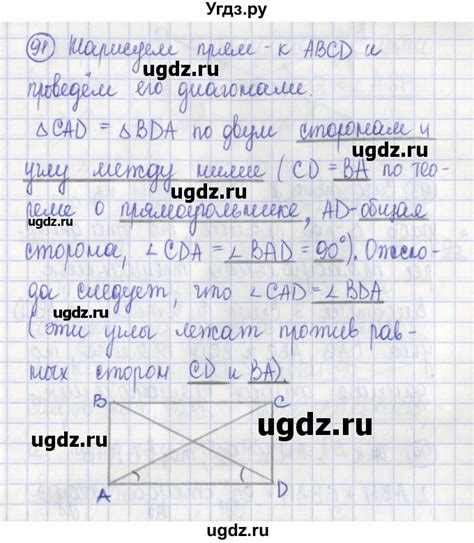 Угдз.ру
91 Нарисуем прям-к ABCD и
ugdz.ru
проведём его диагонали.
△CAD = △BDA по двум сторонам и
ugdz.ru
углу между ними (CD = BA по тео-
реме о прямоугольнике, AD-общая
сторона, ∠CDA = ∠BAD = 90°). Отсю-
да следует, что ∠CAD = ∠BDA
ugdz.ru
(эти углы лежат против рав-
ных сторон CD и BA).
B C
ugdz.ru
ugdz.ru
A D
ugdz.ru